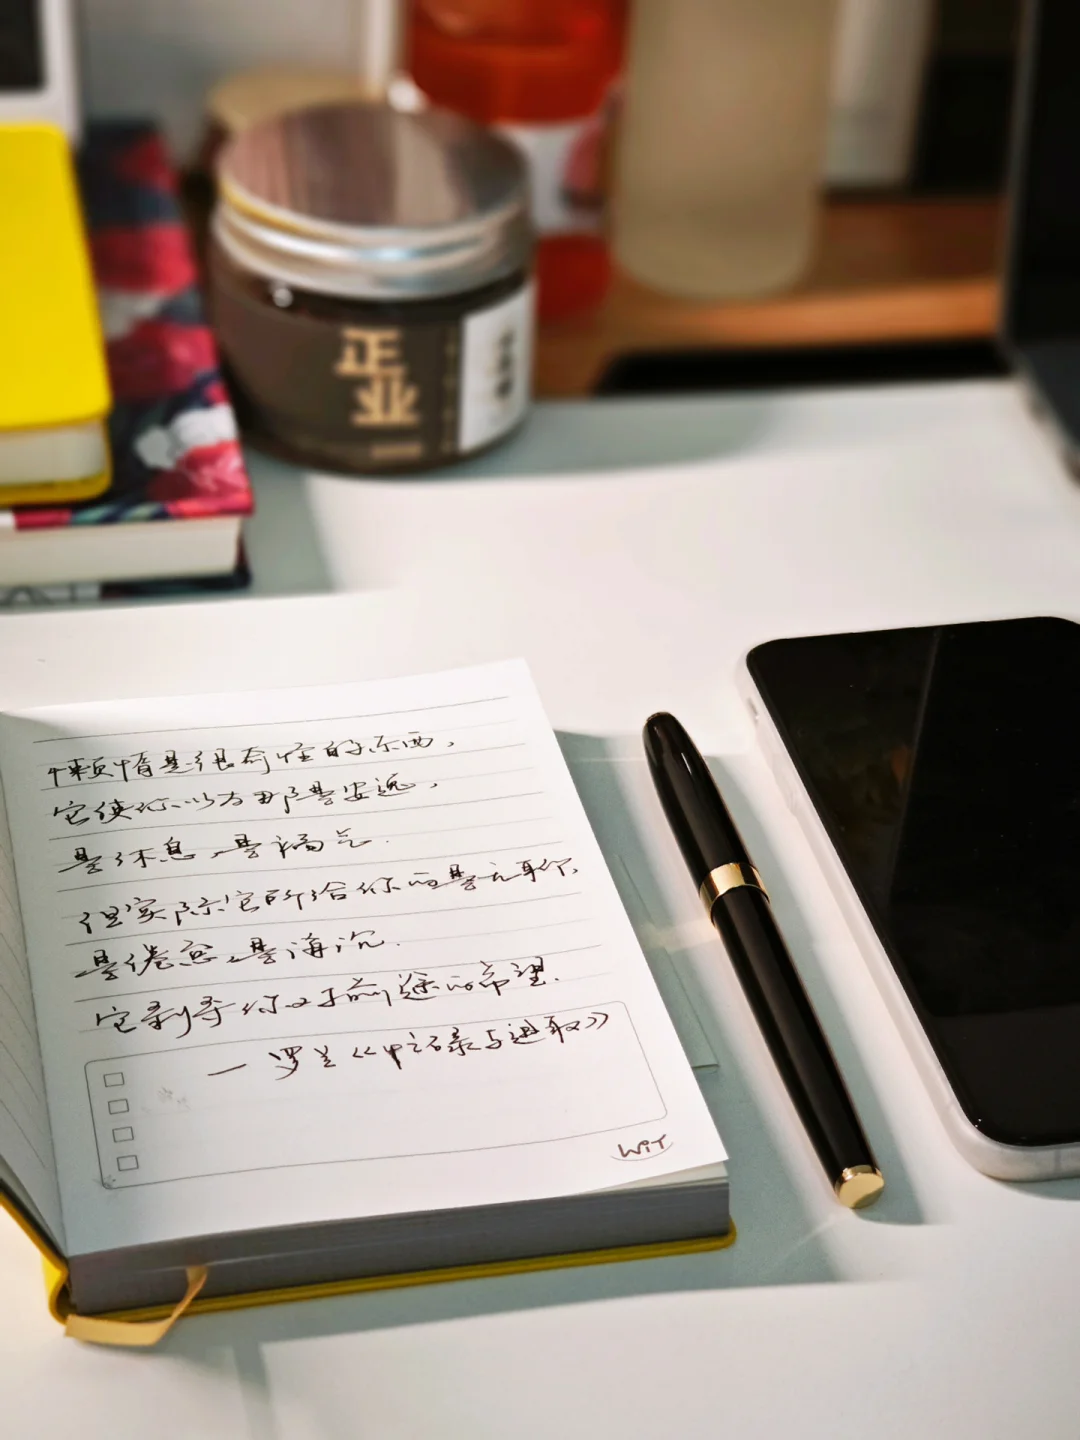 正
业
懒惰是很奇怪的东西，
它使你以为那是安逸，
是休息，是福气.
但实际它所给你的是无聊，
是倦怠，是消沉.
它剥夺你对于前途的希望.
— 罗兰《忙碌与进取》
WiY